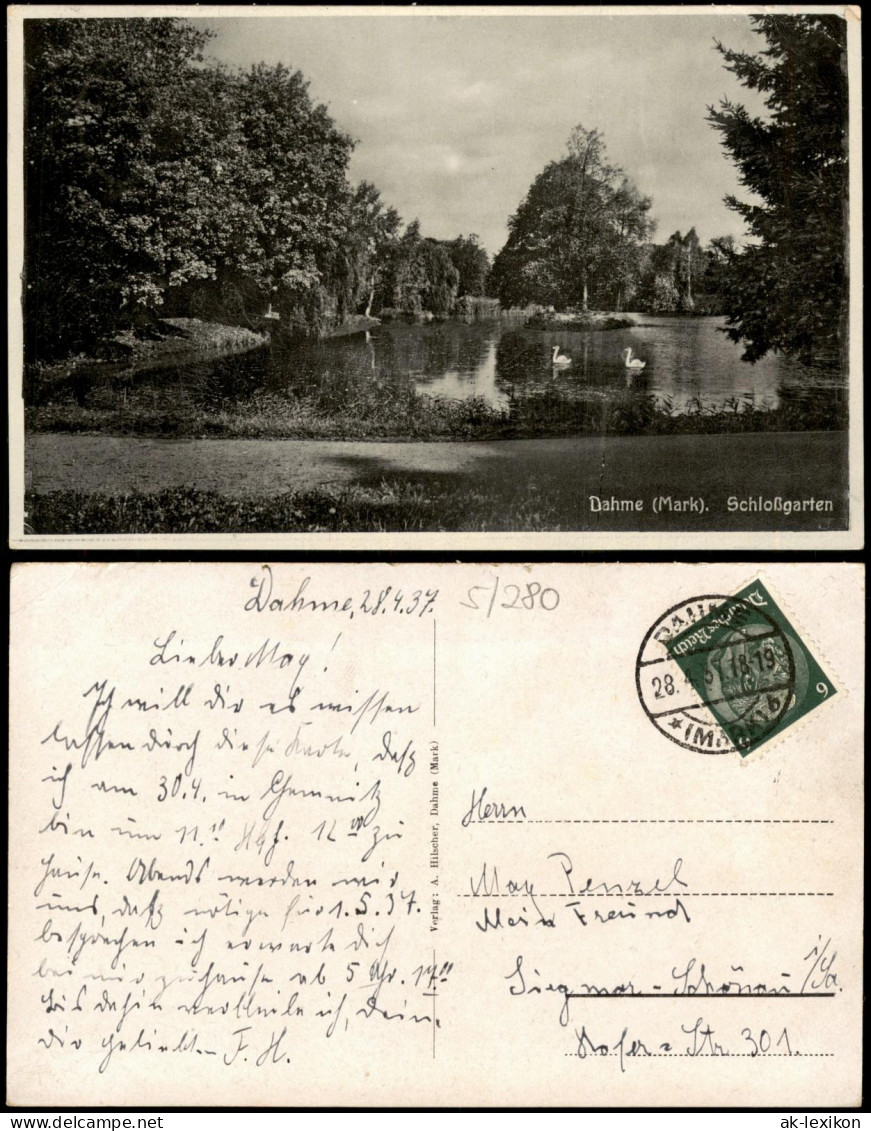 Dahme (Mark). Schloßgarten
Dahme, 28.4.37.
5/280
Lieber Max!
Ich will dir es wissen
lassen durch diese Karte, daß
ich am 30.4. in Chemnitz
bin um 11.10 Hbf. 12 00 zu
Hause. Abends werden wir
uns, daß nötige für 1.5.37.
besprechen ich erwarte dich
bei mir zuhause ab 5 Uhr. 17 00
bis dahin verbleibe ich, dein,
dir geliebt.- F. H.
Verlag: A. Hilscher, Dahme (Mark)
DAHME
28.4.37.18-19
*(MARK) b
Deutsches Reich
6
Herrn
Max Penzel
Mein Freund
Siegmar-Schönau i/Sa.
Hofer-Str. 301.
www.ansichtskarten-lexikon.de
ak-lexikon